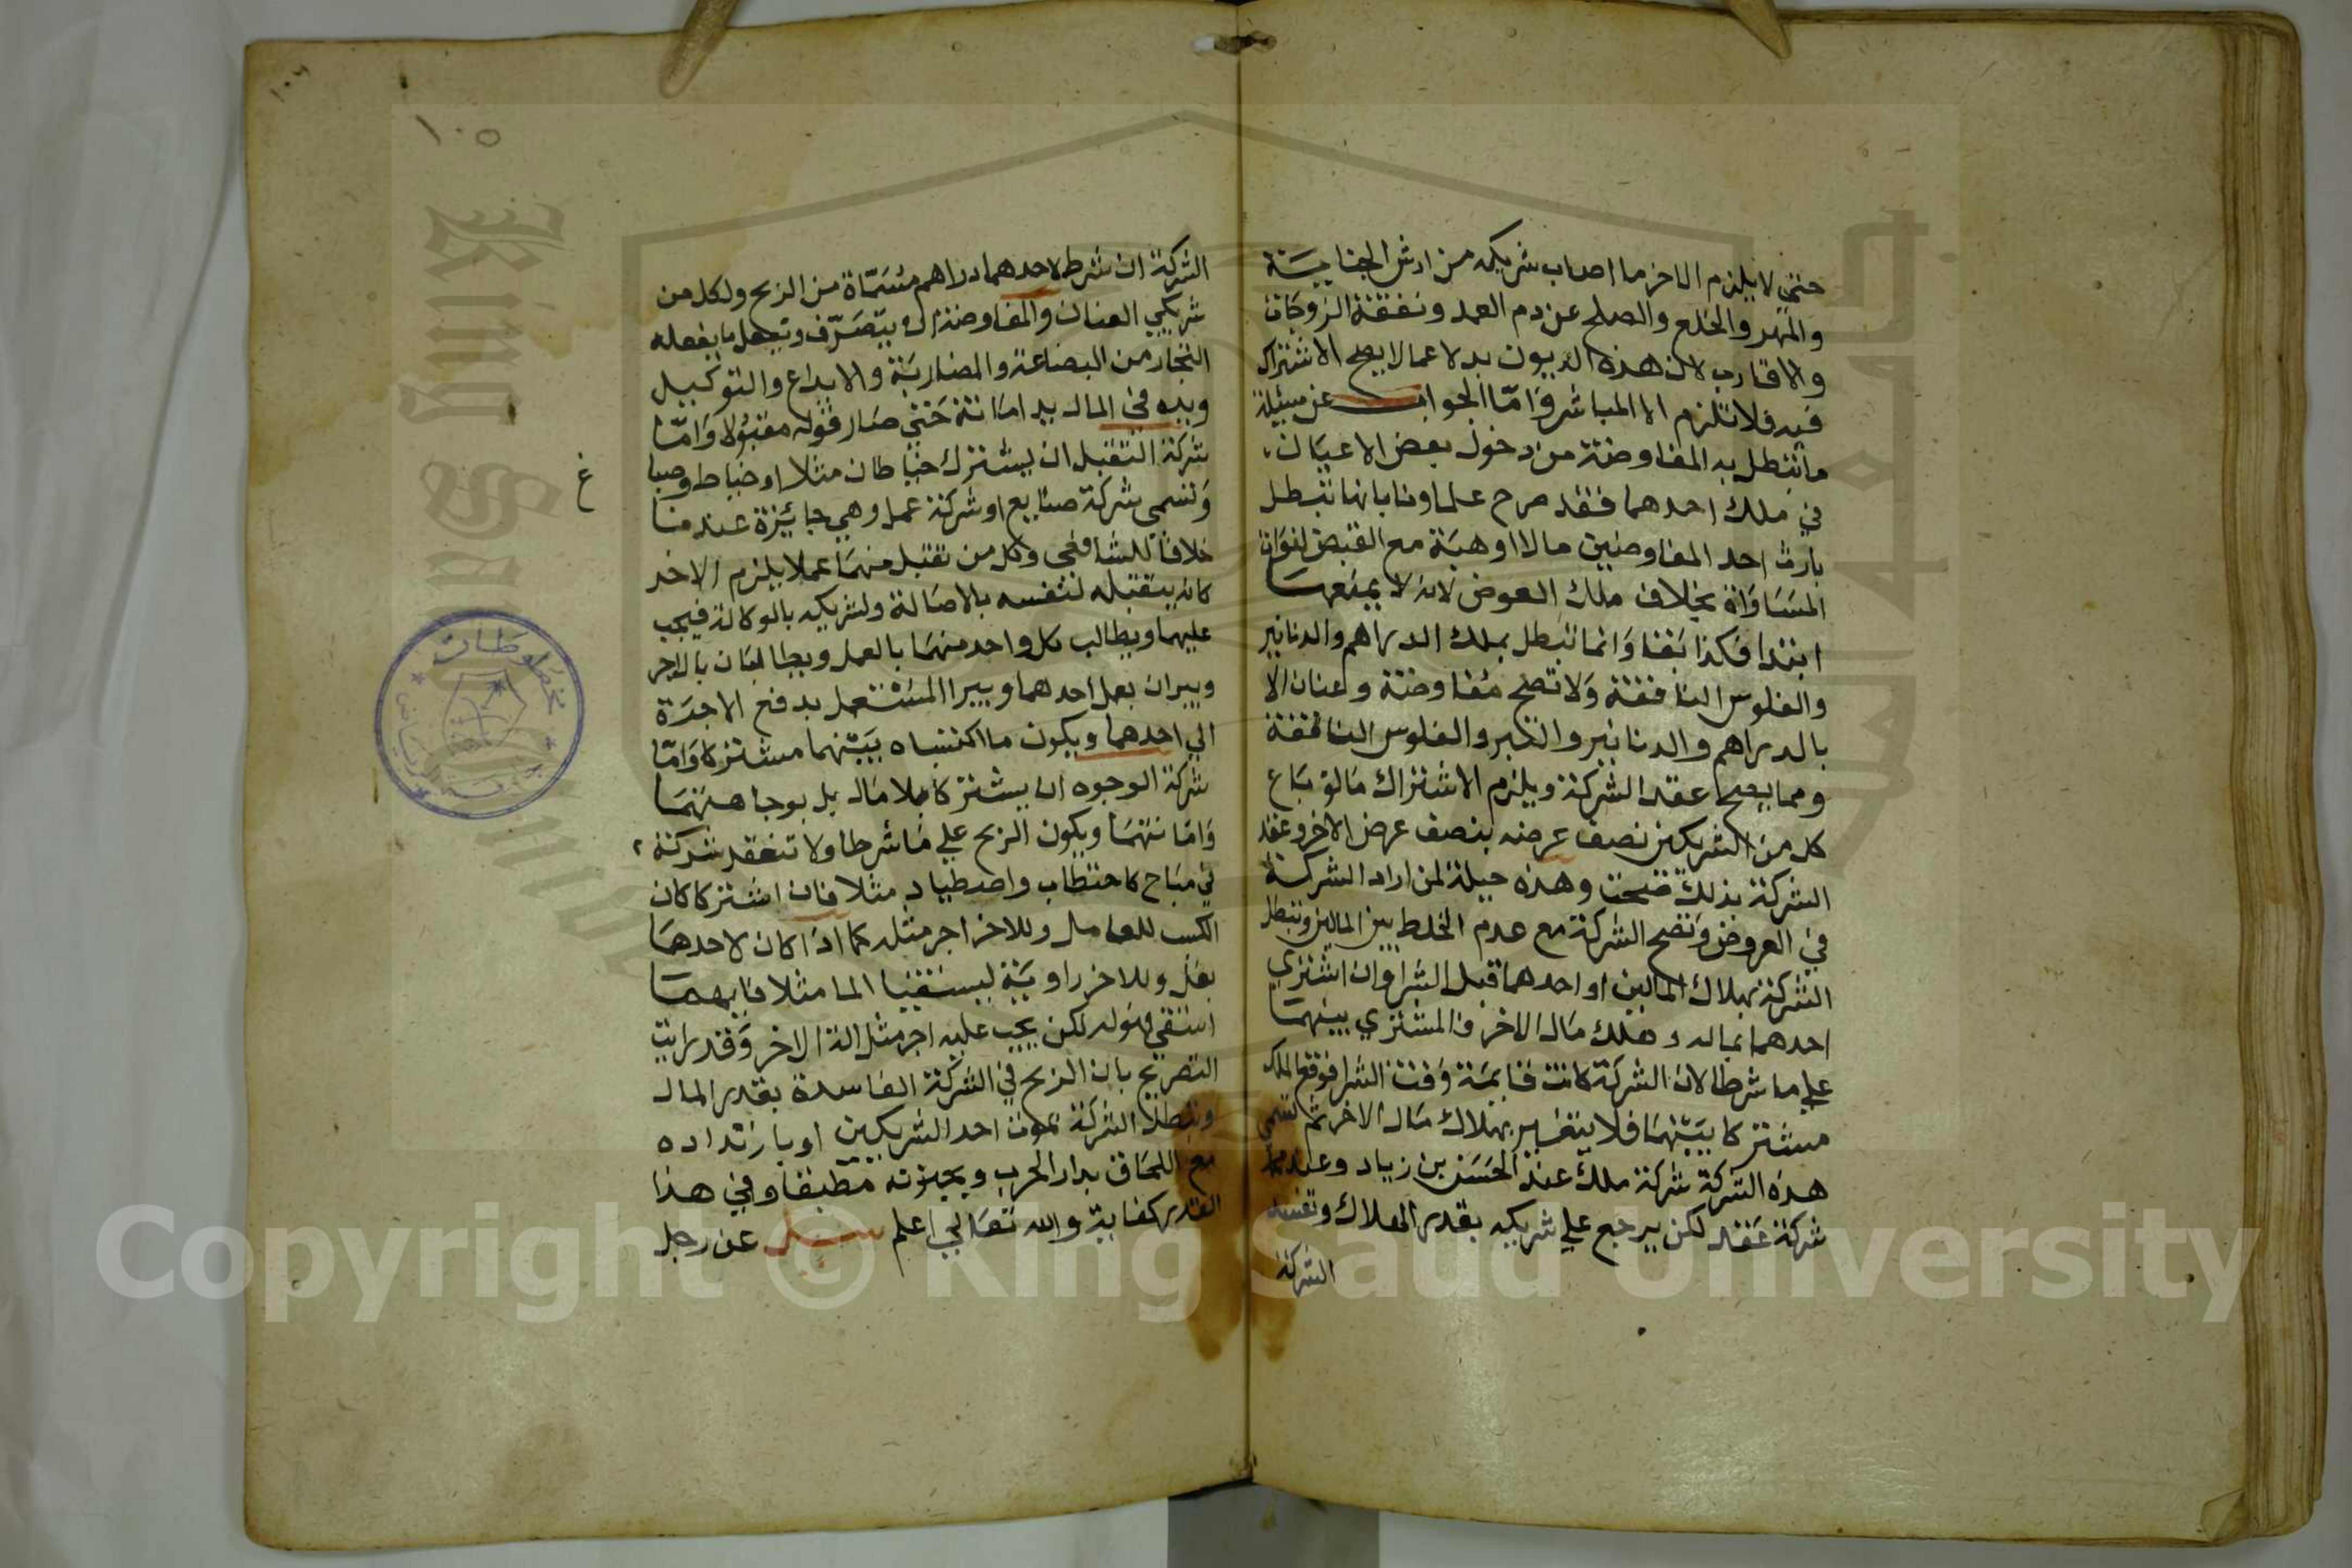 حتي لا يلزم الاخر ما اصاب شريكه من ارش الجناية
والمهر والخلع والصلح عن دم العمد ونفقة الزوجات
والاقارب لان هذه الديون بدلا عما لا يصح الاشتراك
فيه فلا تلزم الا المباشر وَامّا الجواب عن مسئلة
ما تبطل به المفاوضة من دخول بعض الاعيان
في ملك احدهما فقد صرح علماونا بانها تبطل
بارث احد المفاوضين مالا او هبة مع القبض لفوات
المسَاوَاة بخلاف ملك العوض لانه لا يمنعها
ابتدا فكذا بقا وَانما تبطل بملك الدراهم والدنانير
والفلوس النافقة وَلا تصح مفاوضة وعنان الا
بالدراهم والدنانير والتبر والفلوس النافقة
ومما يصح عقد الشركة ويلزم الاشتراك مَا لو بَاع
كل من الشريكين نصف عرضه بنصف عرض الاخر وعقد
الشركة بذلك صحت وهذه حيلة لمن اراد الشركة
في العروض وَتصح الشركة مع عدم الخلط بين المالين وتبطل
الشركة بهلاك المالين او احدهما قبل الشرا وان اشتري
احدهما بماله وهلك مَال الاخر فالمشتري بينهما
علي ما شرطا لان الشركة كانت قايمة وَقت الشرا فوقع الملك
مشتركا بينهما فلا يتغير بهلاك مَال الاخر ثم تسمي
هذه الشركة شركة ملك عند الحسَن بن زياد وعند محمد
شركة عَقد لكن يرجع علي شريكه بقدر الهلاك وتفسد
الشركة
١٠٤
١٠٥
الشركة ان شرط لاحدهما دراهم مسَمّاة من الربح ولكل من
شريكي العنان والمفاوضة ان يتصَرّف ويعمل ما يفعله
التجار من البضاعة والمضاربَة والايداع والتوكيل
ويده في المال يد امَانة حَتي صَار قوله مقبُولا وَامّا
شركة التقبل ان يشترك خياطان مثلا او خياط وصبا
غ
وَتسمي شركة صنايع او شركة عمل وهي جايزة عندنا
خلافا للشافعي وكل من تقبل منهمَا عملا يلزم الاخر
كانه يتقبله لنفسه بالاصَالة ولشريكه بالوكالة فيجب
عليهما ويطالب كل واحد منهمَا بالعمل ويطالبَان بالاجر
ويبران بعمل احدهما ويبرا المستعمل بدفع الاجرَة
الي احدهما ويكون ما اكتسباه بَينهما مشتركا وَامّا
شركة الوجوه ان يشتركا بلا مَال بل بوجاهتهمَا
وَامَانتهمَا ويكون الربح علي مَا شرطا ولا تنعقد شركة
في مبَاح كاحتطاب واصطياد مثلا فان اشتركا كان
الكسب للعامل وللاخر اجر مثله كما اذَا كان لاحدهمَا
بغل وللاخر راوية ليستقيا الما مثلا فايهما
استقي فهو له لكن يجب عليه اجر مثل الة الاخر وَقد رايت
التصريح بان الربح في الشركة الفاسدة بقدر المال
وتبطل الشركة بموت احد الشريكين او بارتداده
مع اللحَاق بدار الحرب وبجنونه مطبقا وفي هذا
القدر كفاية والله تعَالي اعلم سيل عن رجل
مخطوطات
King Saud University
Copyright © King Saud University